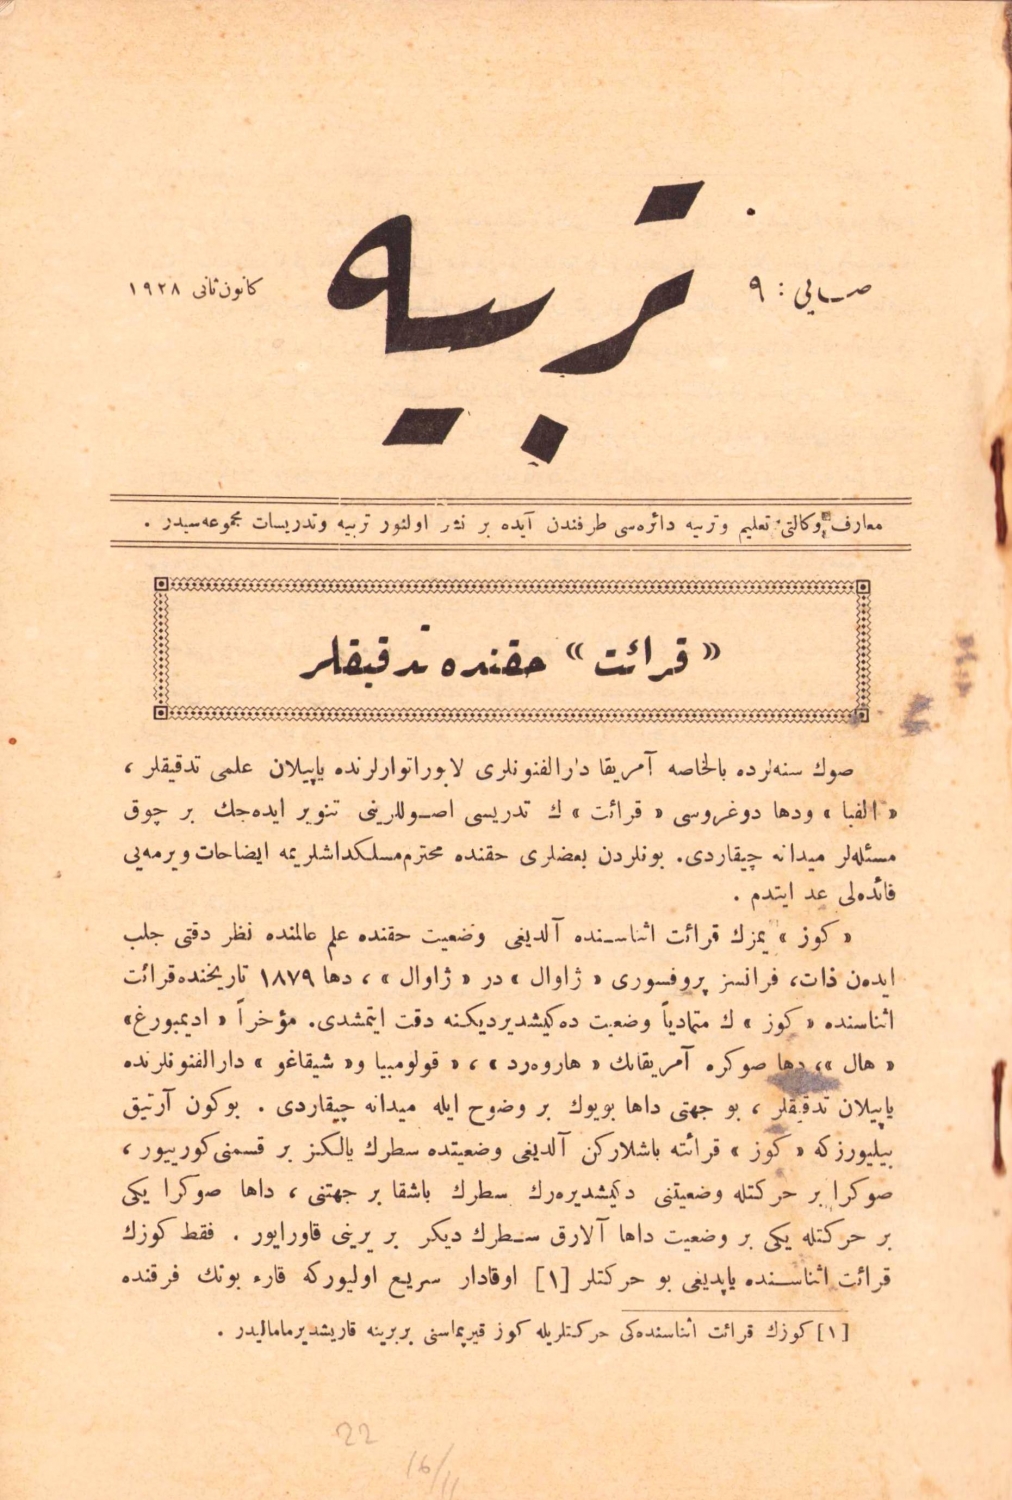 صایی : ۹
تربیه
كانون ثانی ۱۹۲۸
معارف وكالتی تعلیم وتربیه دائره‌سی طرفندن آیده بر نشر اولنور تربیه وتدریسات مجموعه‌سیدر .
« قرائت » حقنده تدقیقلر
صوك سنه‌لرده بالخاصه آمریقا دارالفنونلری لابوراتوارلرنده یاپیلان علمی تدقیقلر ،
« الفبا » ودها دوغروسی « قرائت » ك تدریسی اصوللرینی تنویر ایده‌جك بر چوق
مسئله‌لر میدانه چیقاردی. بونلردن بعضلری حقنده محترم مسلكداشلریمه ایضاحات ویرمه‌یی
فائده‌لی عد ایتدم .
« كوز » یمزك قرائت اثناسنده آلدیغی وضعیت حقنده علم عالمنده نظر دقتی جلب
ایده‌ن ذات، فرانسز پروفسوری « ژاوال » در « ژاوال » ، دها ۱۸۷۹ تاریخنده قرائت
اثناسنده « كوز » ك متمادیاً وضعیت ده‌كیشدیردیكنه دقت ایتمشدی. مؤخراً « ادیمبورغ»
« هال »، دها صوكره آمریقانك « هاروه‌رد » ، « قولومبیا و« شیقاغو » دارالفنونلرنده
یاپیلان تدقیقلر ، بو جهتی داها بویوك بر وضوح ایله میدانه چیقاردی . بوكون آرتیق
بیلیورزكه « كوز » قرائته باشلاركن آلدیغی وضعیتده سطرك یالكز بر قسمنی كورییور ،
صوكرا بر حركتله وضعیتنی دكیشدیره‌رك سطرك باشقا بر جهتنی ، داها صوكرا یكی
بر حركتله یكی بر وضعیت داها آلارق سطرك دیكر بر یرینی قاورایور . فقط كوزك
قرائت اثناسنده یاپدیغی بو حركتلر [۱] اوقادار سریع اولیوركه قارء بونك فرقنده
[۱] كوزك قرائت اثناسنده‌كی حركتلریله كوز قیرپماسنی بربرینه قاریشدیرمامالیدر .
22
16/11